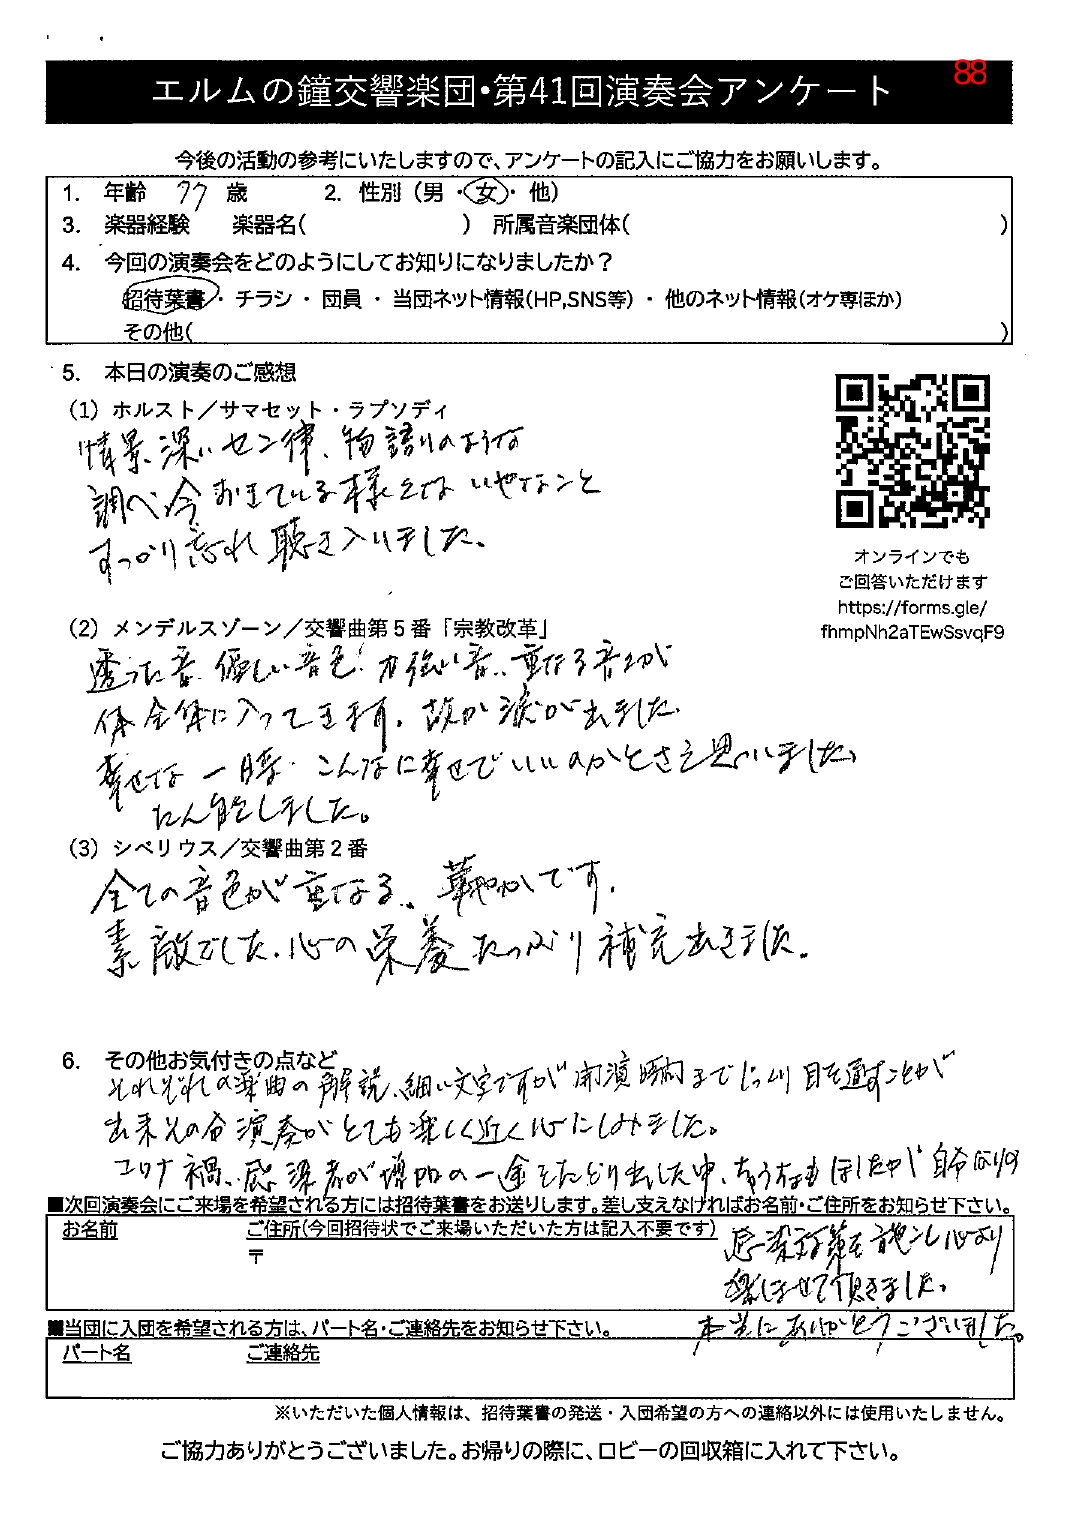 エルムの鐘交響楽団・第41回演奏会アンケート
88
今後の活動の参考にいたしますので、アンケートの記入にご協力をお願いします。
1. 年齢 77 歳 2. 性別（男・女・他）
3. 楽器経験 楽器名( ) 所属音楽団体( )
4. 今回の演奏会をどのようにしてお知りになりましたか？
招待葉書・チラシ・団員・当団ネット情報(HP,SNS等)・他のネット情報(オケ専ほか)
その他( )
5. 本日の演奏のご感想
（1）ホルスト／サマセット・ラプソディ
情景、深いセン律、物語りのような
調べ、今おきている様々な いやなこと
すっかり忘れ聴き入りました。
オンラインでも
ご回答いただけます
https://forms.gle/
fhmpNh2aTEwSsvqF9
（2）メンデルスゾーン／交響曲第５番「宗教改革」
透った音、優しい音色！力強い音、重なる音々が
体全体に入ってきます。故か涙が出ました。
幸せな一時、こんなに幸せでいいのかとさえ思いました。
たん能しました。
（3）シベリウス／交響曲第２番
全ての音色が重なる、華やかです。
素敵でした。心の栄養たっぷり補充出きました。
6. その他お気付きの点など
それぞれの楽曲の解説、細い文字ですが開演時間までじっくり目を通すことが
出来その分演奏がとても楽しく近く心にしみました。
コロナ禍、感染者が増加の一途をたどり出した中、ちゅうちょもしましたが自分なりの
■次回演奏会にご来場を希望される方には招待葉書をお送りします。差し支えなければお名前・ご住所をお知らせ下さい。
お名前 ご住所(今回招待状でご来場いただいた方は記入不要です)
〒
感染対策を施こし心より
楽しませて頂きました。
本当にありがとうございました。
■当団に入団を希望される方は、パート名・ご連絡先をお知らせ下さい。
パート名 ご連絡先
※いただいた個人情報は、招待葉書の発送・入団希望の方への連絡以外には使用いたしません。
ご協力ありがとうございました。お帰りの際に、ロビーの回収箱に入れて下さい。